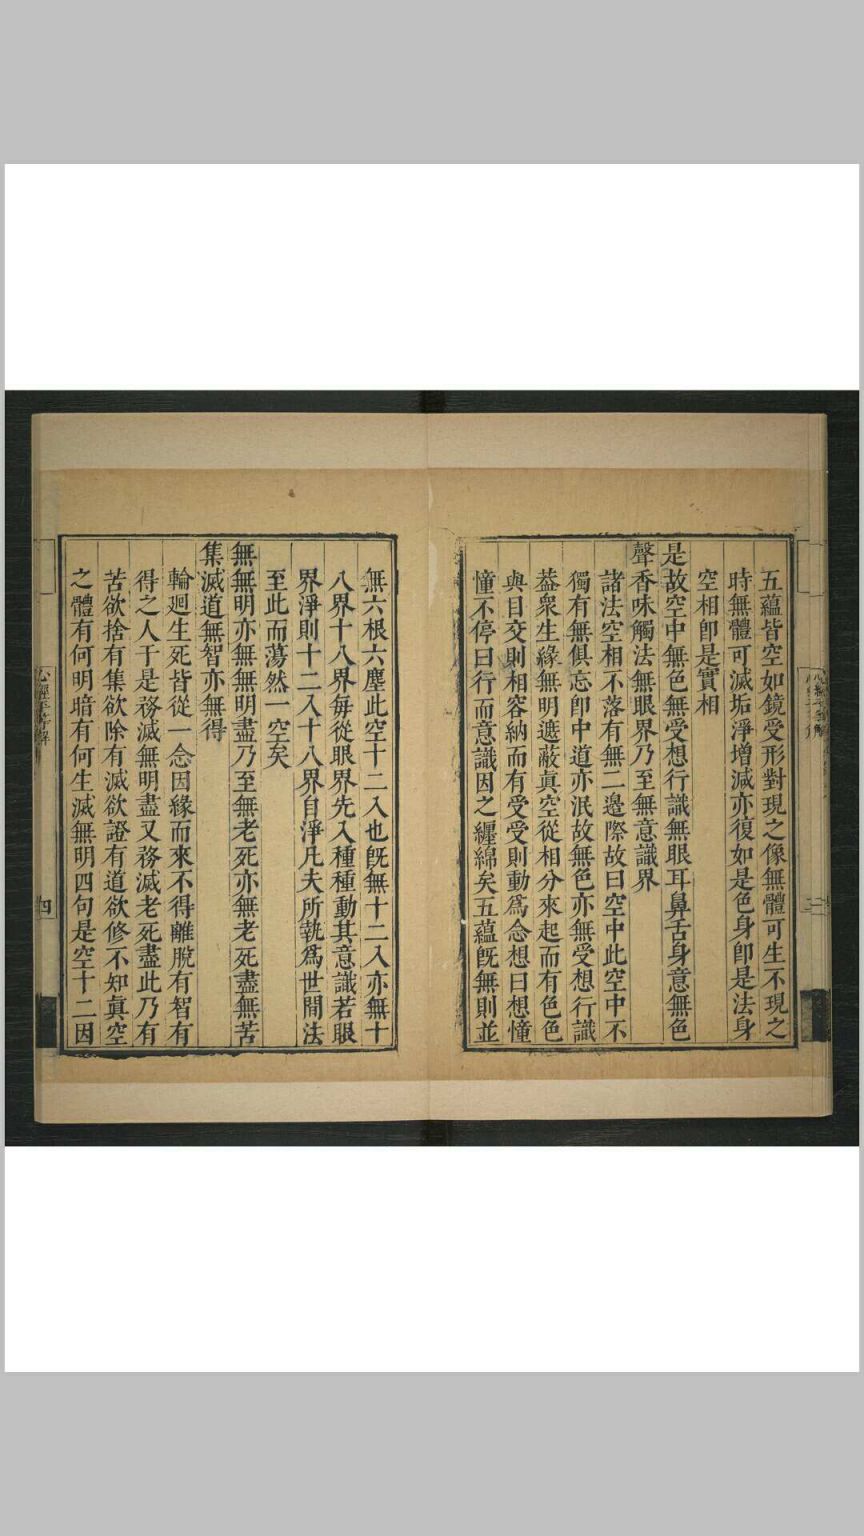 五蘊皆空如鏡受形對現之像無體可生不現之
時無體可滅垢淨增減亦復如是色身卽是法身
空相卽是實相
是故空中無色無受想行識無眼耳鼻舌身意無色
聲香味觸法無眼界乃至無意識界
諸法空相不落有無二邊際故曰空中此空中不
獨有無俱忘卽中道亦泯故無色亦無受想行識
葢衆生緣無明遮蔽真空從相分來起而有色色
與目交則相容納而有受受則動爲念想曰想憧
憧不停曰行而意識因之纏綿矣五蘊旣無則並
無六根六塵此空十二入也旣無十二入亦無十
八界十八界每從眼界先入種種動其意識若眼
界淨則十二入十八界自淨凡夫所執爲世間法
至此而蕩然一空矣
無無明亦無無明盡乃至無老死亦無老死盡無苦
集滅道無智亦無得
輪廻生死皆從一念因緣而來不得離脫有智有
得之人于是務滅無明盡又務滅老死盡此乃有
苦欲捨有集欲除有滅欲證有道欲修不知真空
之體有何明暗有何生滅無明四句是空十二因
四